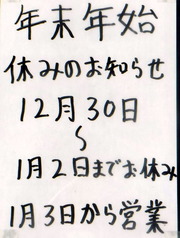 年末年始
休みのお知らせ
12月30日
~
1月2日までお休み
1月3日から営業